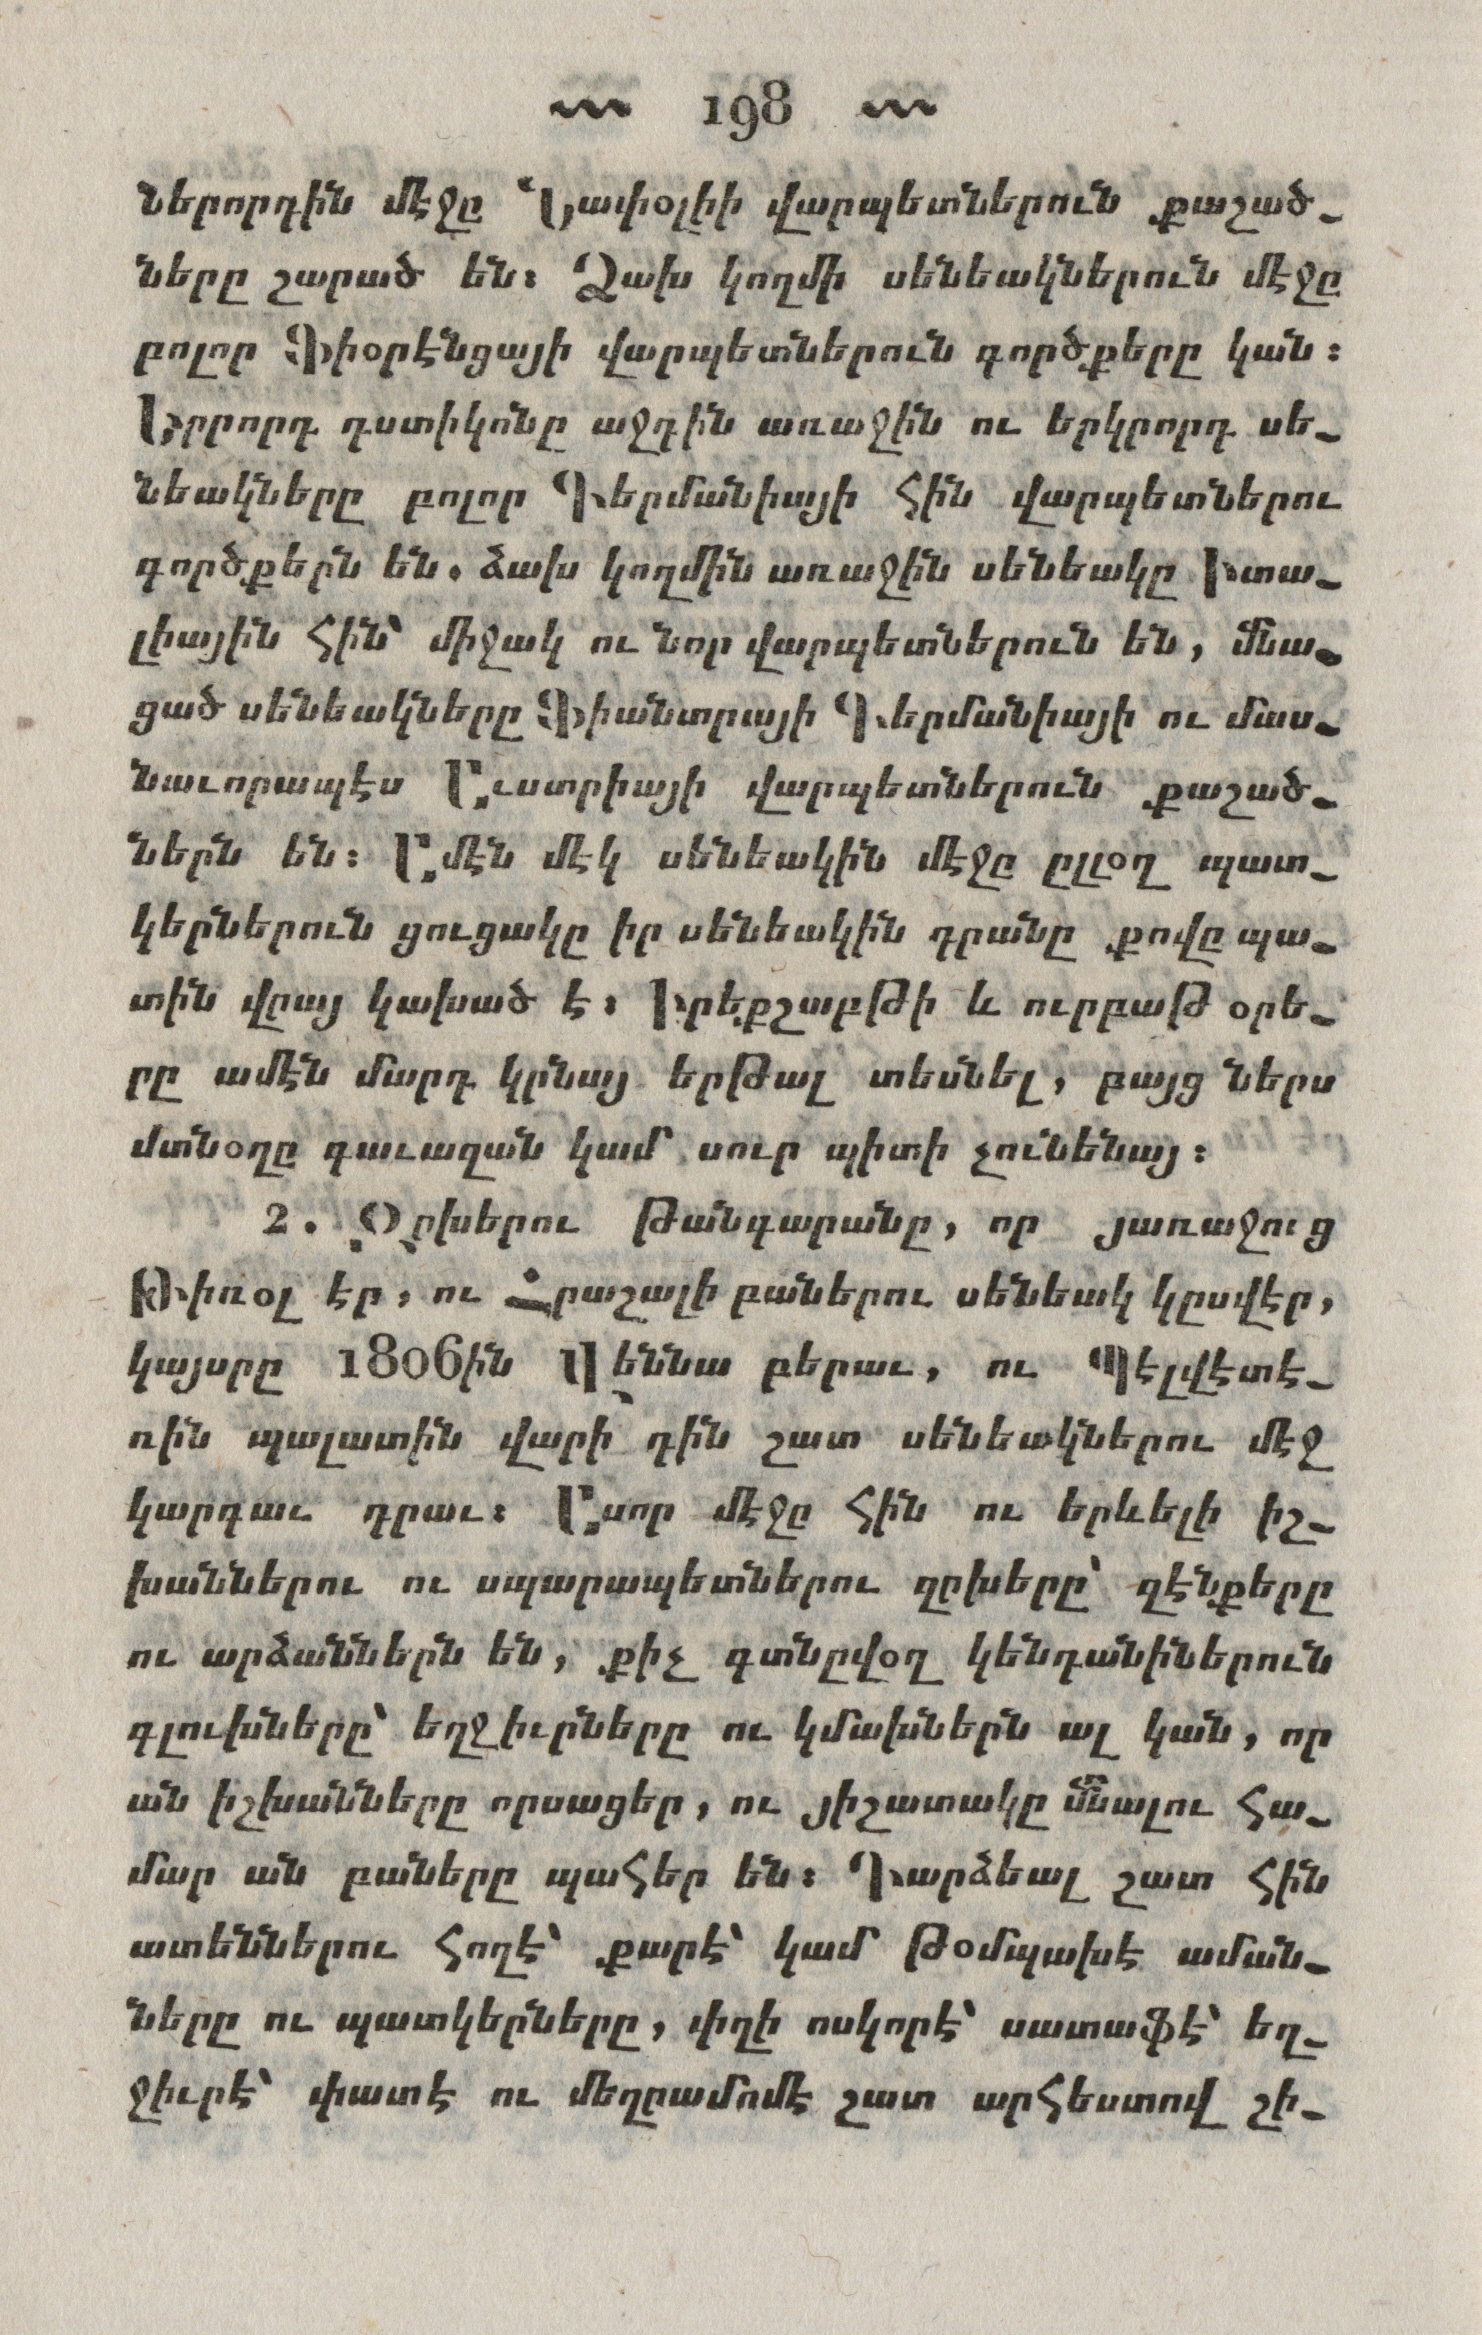 198
ներորդին մէջը Նափօլիի վարպետներուն քաշած֊
ները շարած են։ Ձախ կողմի սենեակներուն մէջը
բոլոր Ֆիօրէնցայի վարպետներուն գործքերը կան։
Երրորդ դստիկոնը աջդին առաջին ու երկրորդ սե֊
նեակները բոլոր Գերմանիայի հին վարպետներու
գործքերն են. ձախ կողմին առաջին սենեակը Իտա֊
լիային հին՝ միջակ ու նոր վարպետներուն են, մնա֊
ցած սենեակները Ֆիանտրայի Գերմանիայի ու մաս֊
նաւորապէս Աւստրիայի վարպետներուն քաշած֊
ներն են։ Ամէն մէկ սենեակին մէջը ըլլօղ պատ֊
կերներուն ցուցակը իր սենեակին դրանը քովը պա֊
տին վըայ կախած է։ Իրեքշաբթի և ուրբաթ օրե֊
րը ամէն մարդ կրնայ երթալ տեսնել, բայց ներս
մտնօղը գաւազան կամ սուր պիտի չունենայ։
2. Զըխերու թանգարանը, որ յառաջուց
Թիռօլ էր, ու Հրաշալի բաներու սենեակ կըսվէր,
կայսրը 1806ին Վեննա բերաւ, ու Պէլվէտէ֊
ռին պալատին վարի դին շատ սենեակներու մէջ
կարգաւ դրաւ։ Ասոր մէջը հին ու երևելի իշ֊
խաններու ու սպարապետներու զըխերը՝ զէնքերը
ու արձաններն են, քիչ գտնըվօղ կենդանիներուն
գլուխները՝ եղջիւրները ու կմախներն ալ կան, որ
ան իշխանները որսացեր, ու յիշատակը մնալու հա֊
մար ան բաները պահեր են։ Դարձեալ շատ հին
ատեններու հողէ՝ քարէ՝ կամ թօմպախէ աման֊
ները ու պատկերները, փղի ոսկորէ՝ սատաֆէ՝ եղ֊
ջիւրէ՝ փատէ ու մեղըամոմէ շատ արհեստով շի֊